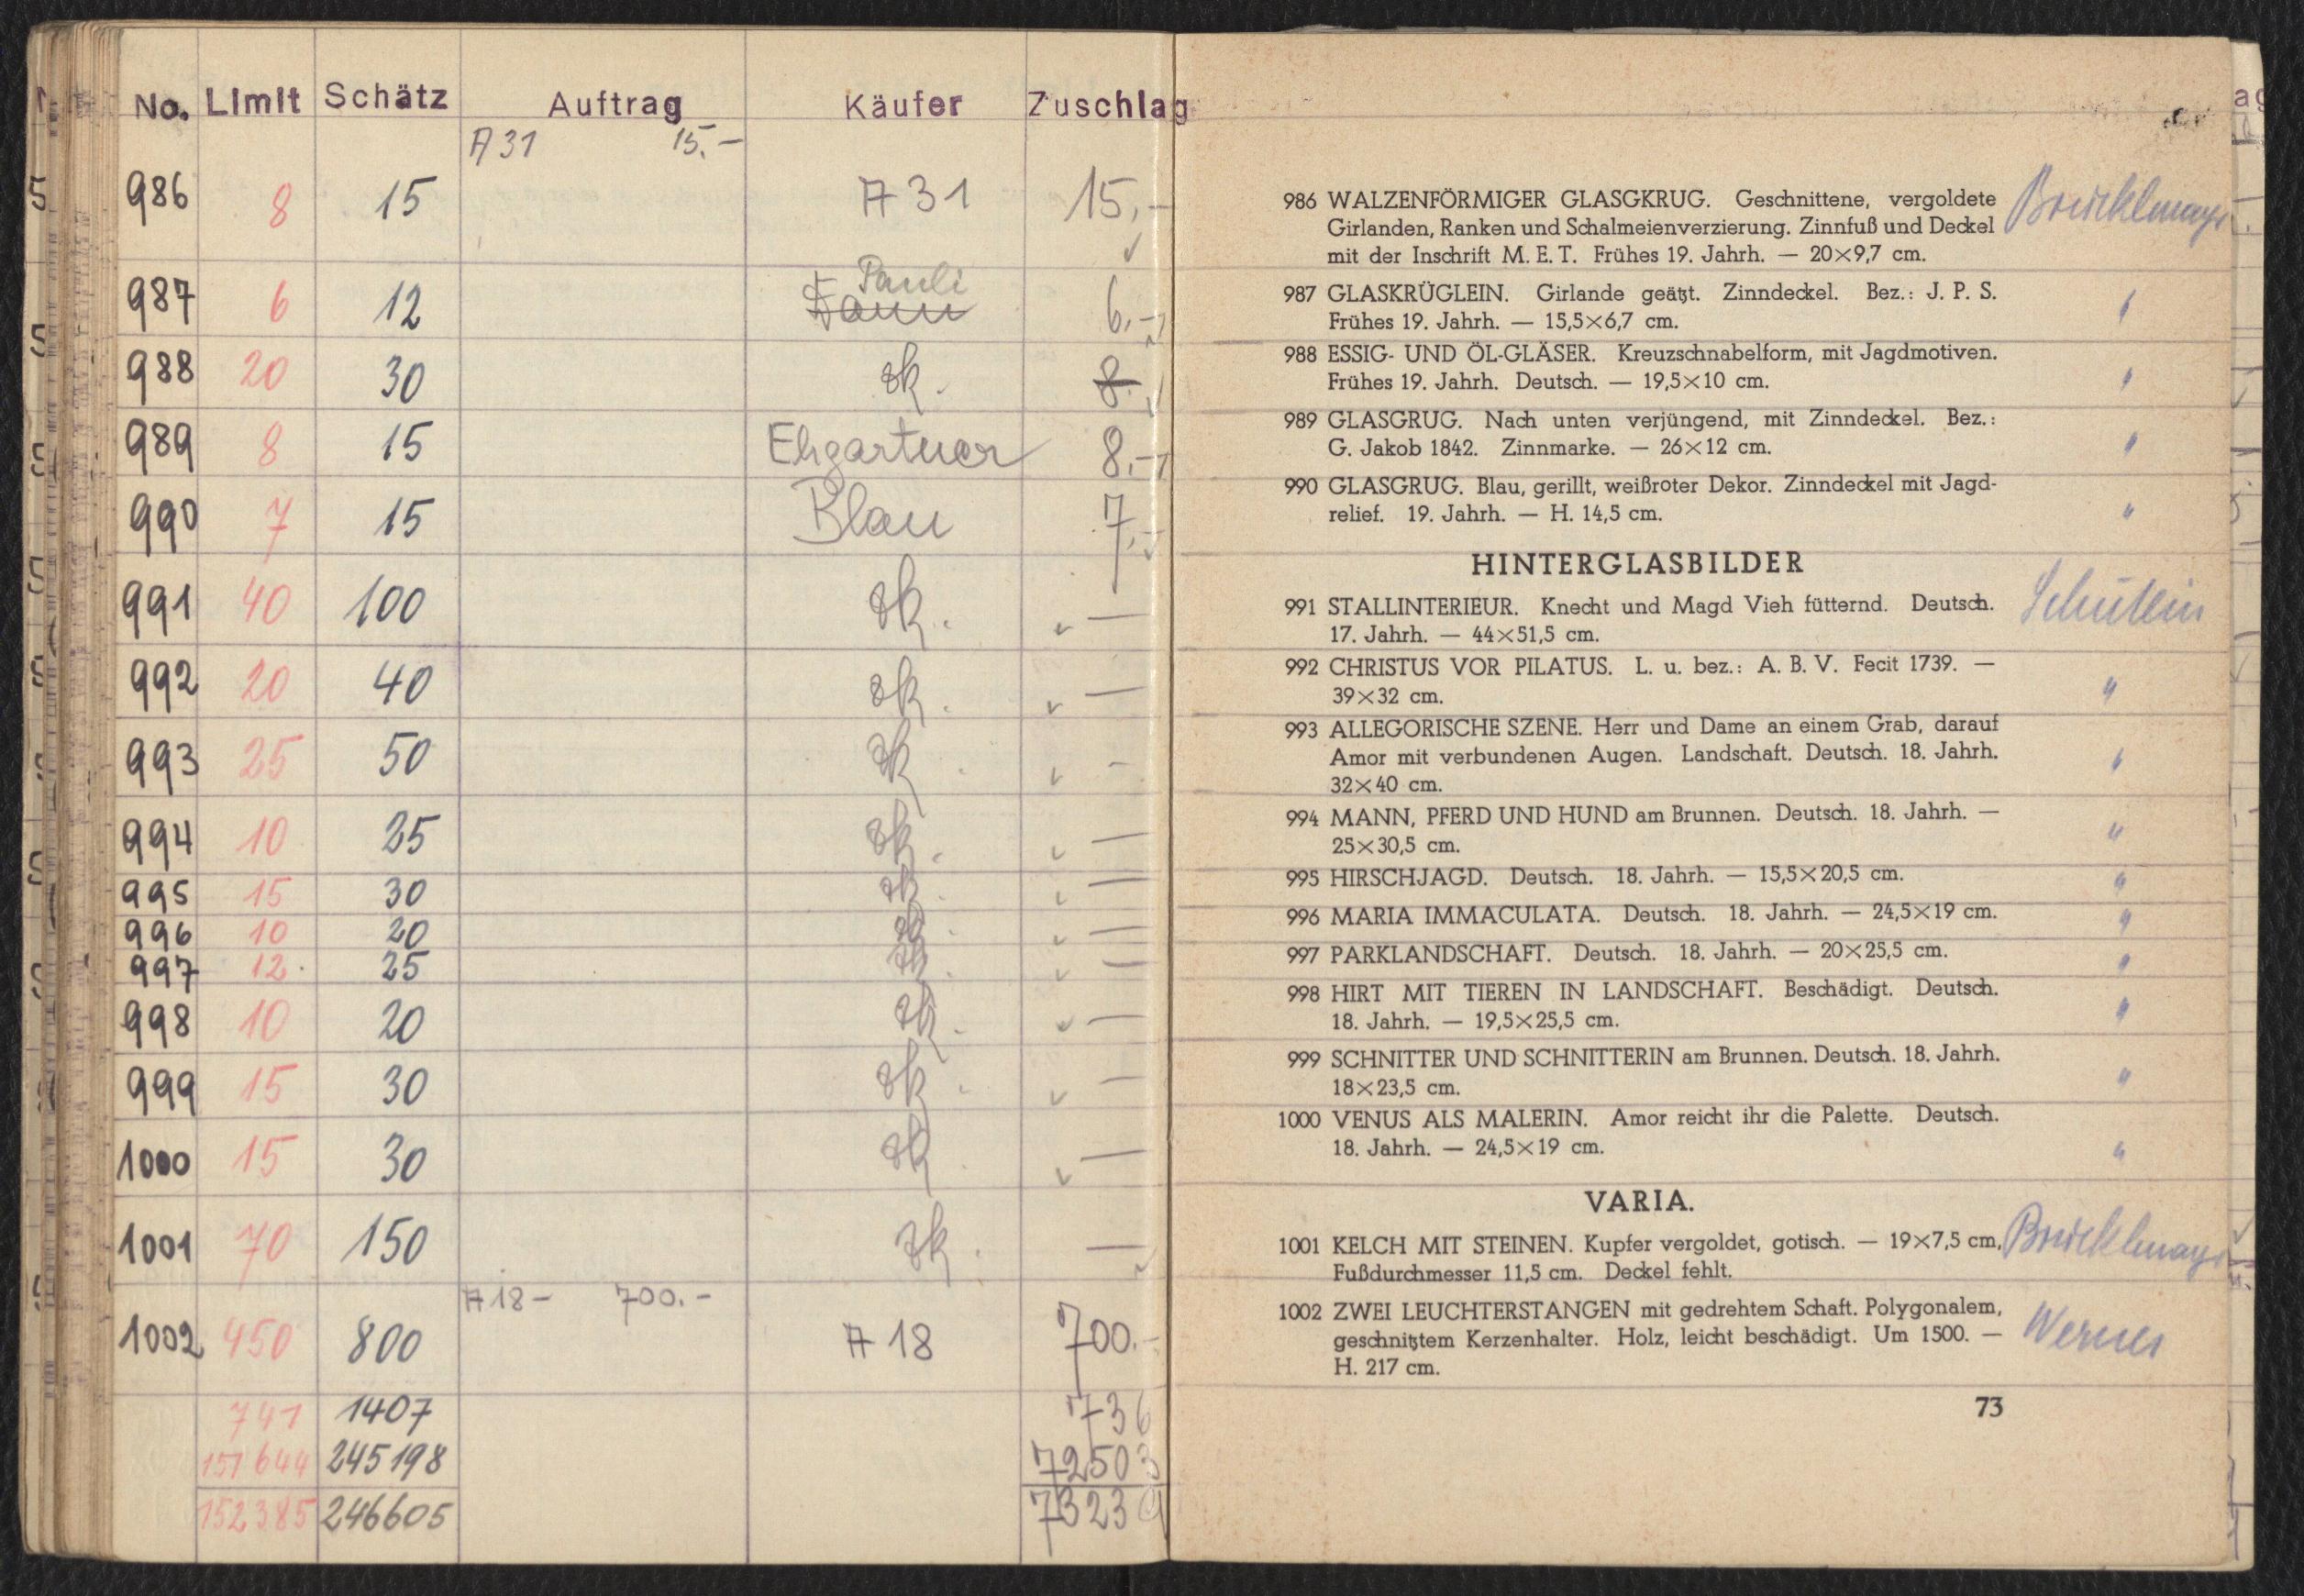 No. Limit Schätz Auftrag Käufer Zuschlag
A 31 15.-
986 8 15 A 31 15,-
987 6 12 Pauli 6.-
988 20 30 zk. 8.-
989 8 15 Ehgartner 8,-
990 7 15 Blau 7,-
991 40 100 zk. —
992 20 40 zk. —
993 25 50 zk. -
994 10 25 zk. —
995 15 30 zk. —
996 10 20 zk. —
997 12 25 zk. —
998 10 20 zk. —
999 15 30 zk. —
1000 15 30 zk. —
1001 70 150 zk. —
A 18 - 700.-
1002 450 800 A 18 700.-
741 1407 736
151644 245198 72503
152385 246605 73239
986 WALZENFÖRMIGER GLASGKRUG. Geschnittene, vergoldete
Girlanden, Ranken und Schalmeienverzierung. Zinnfuß und Deckel
mit der Inschrift M. E. T. Frühes 19. Jahrh. — 20×9,7 cm.
987 GLASKRÜGLEIN. Girlande geätzt. Zinndeckel. Bez.: J. P. S. "
Frühes 19. Jahrh. — 15,5×6,7 cm.
988 ESSIG- UND ÖL-GLÄSER. Kreuzschnabelform, mit Jagdmotiven.
Frühes 19. Jahrh. Deutsch. — 19,5×10 cm. "
989 GLASGRUG. Nach unten verjüngend, mit Zinndeckel. Bez.:
G. Jakob 1842. Zinnmarke. — 26×12 cm. "
990 GLASGRUG. Blau, gerillt, weißroter Dekor. Zinndeckel mit Jagd-
relief. 19. Jahrh. — H. 14,5 cm. "
HINTERGLASBILDER
991 STALLINTERIEUR. Knecht und Magd Vieh fütternd. Deutsch. Schülein
17. Jahrh. — 44×51,5 cm.
992 CHRISTUS VOR PILATUS. L. u. bez.: A. B. V. Fecit 1739. —
39×32 cm. "
993 ALLEGORISCHE SZENE. Herr und Dame an einem Grab, darauf
Amor mit verbundenen Augen. Landschaft. Deutsch. 18. Jahrh. "
32×40 cm.
994 MANN, PFERD UND HUND am Brunnen. Deutsch. 18. Jahrh. —
25×30,5 cm. "
995 HIRSCHJAGD. Deutsch. 18. Jahrh. — 15,5×20,5 cm. "
996 MARIA IMMACULATA. Deutsch. 18. Jahrh. — 24,5×19 cm. "
997 PARKLANDSCHAFT. Deutsch. 18. Jahrh. — 20×25,5 cm. "
998 HIRT MIT TIEREN IN LANDSCHAFT. Beschädigt. Deutsch.
18. Jahrh. — 19,5×25,5 cm. "
999 SCHNITTER UND SCHNITTERIN am Brunnen. Deutsch. 18. Jahrh.
18×23,5 cm. "
1000 VENUS ALS MALERIN. Amor reicht ihr die Palette. Deutsch.
18. Jahrh. — 24,5×19 cm. "
VARIA.
1001 KELCH MIT STEINEN. Kupfer vergoldet, gotisch. — 19×7,5 cm,
Fußdurchmesser 11,5 cm. Deckel fehlt.
1002 ZWEI LEUCHTERSTANGEN mit gedrehtem Schaft. Polygonalem,
geschnitztem Kerzenhalter. Holz, leicht beschädigt. Um 1500. — Werner
H. 217 cm.
73